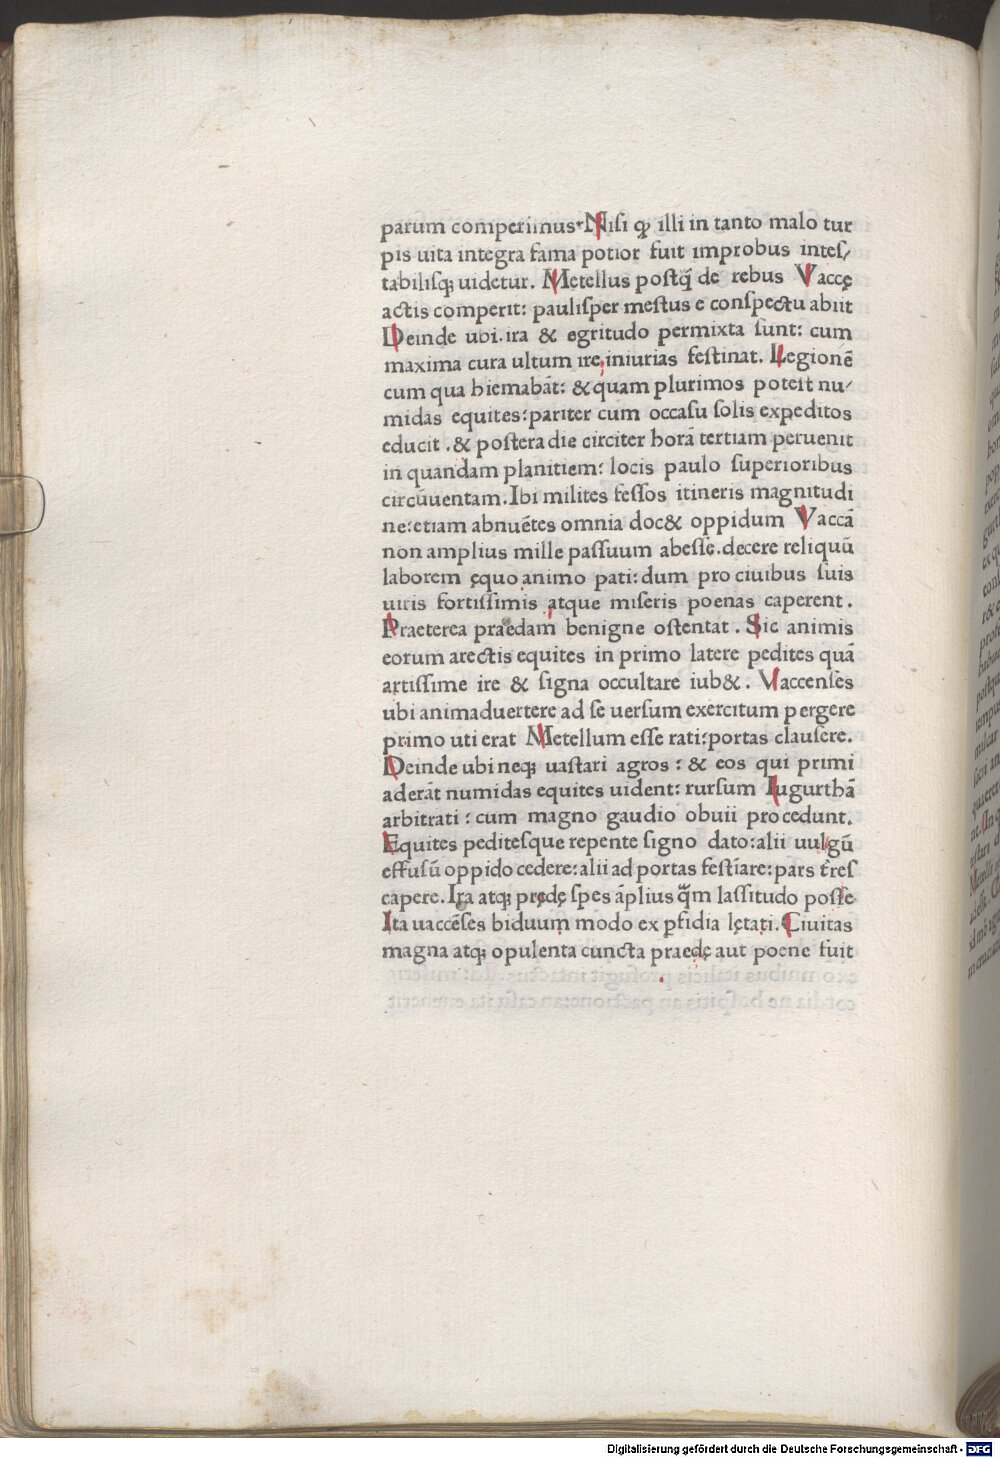 parum comperimus. Niſi ꝙ illi in tanto malo tur
pis uita integra fama potior fuit improbus inteſ/
tabiliſqꝫ uidetur. Metellus poſtq̃ de rebus Vaccę
actis comperit: pauliſper meſtus e conſpectu abiit
Deinde ubi ira & egritudo permixta ſunt: cum
maxima cura ultum ire iniurias feſtinat. Legionē
cum qua hiemabāt: & quam plurimos poteſt nu/
midas equites: pariter cum occaſu ſolis expeditos
educit. & poſtera die circiter horā tertiam peruenit
in quandam planitiem: locis paulo ſuperioribus
circūuentam. Ibi milites feſſos itineris magnitudi
ne: etiam abnuētes omnia doc& oppidum Vaccā
non amplius mille paſſuum abeſſe. decere reliquū
laborem ęquo animo pati: dum pro ciuibus ſuis
uiris fortiſſimis atque miſeris poenas caperent.
Praeterea praedam benigne oſtentat. Sic animis
eorum arectis equites in primo latere pedites quā
artiſſime ire & ſigna occultare iub&. Vaccenſes
ubi animaduertere ad ſe uerſum exercitum pergere
primo uti erat Metellum eſſe rati: portas clauſere.
Deinde ubi neqꝫ uaſtari agros: & eos qui primi
aderāt numidas equites uident: rurſum Iugurthā
arbitrati: cum magno gaudio obuii procedunt.
Equites peditesque repente ſigno dato: alii uulgū
effuſū oppido cedere: alii ad portas feſtīare: pars t̄res
capere. Ira atqꝫ prędę ſpes āplius q̃m laſſitudo poſſe
Ita uaccēſes biduum modo ex ꝑfidia lętati. Ciuitas
magna atqꝫ opulenta cuncta praedę aut poene fuit
Digitalisierung gefördert durch die Deutsche Forschungsgemeinschaft - DFG